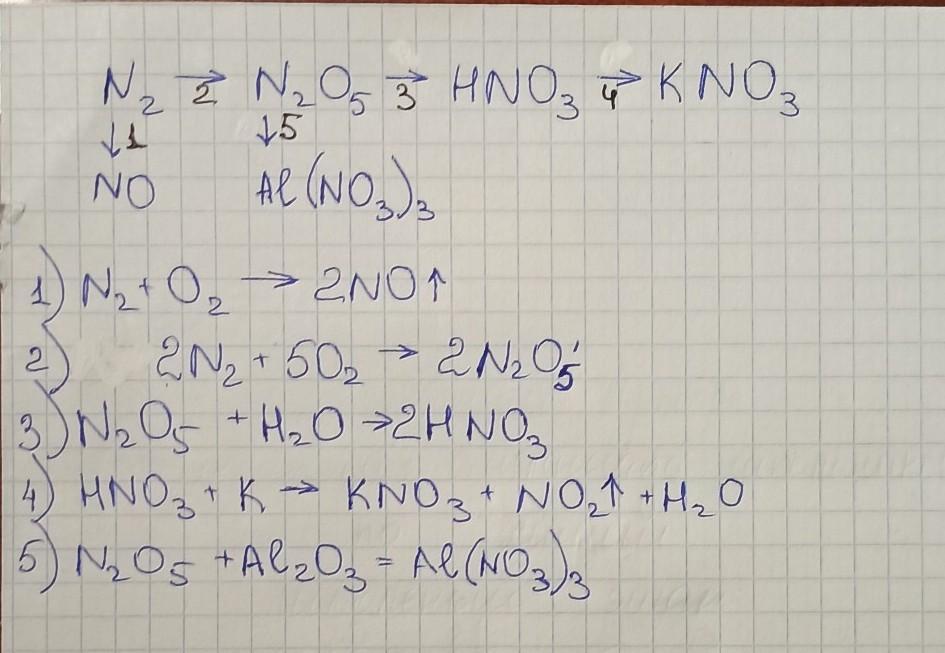 N₂ →2 N₂O₅ →3 HNO₃ →4 KNO₃
↓1 ↓5
NO Al(NO₃)₃
1) N₂ + O₂ → 2NO↑
2) 2N₂ + 5O₂ → 2N₂O₅
3) N₂O₅ + H₂O → 2HNO₃
4) HNO₃ + K → KNO₃ + NO₂↑ + H₂O
5) N₂O₅ + Al₂O₃ = Al(NO₃)₃